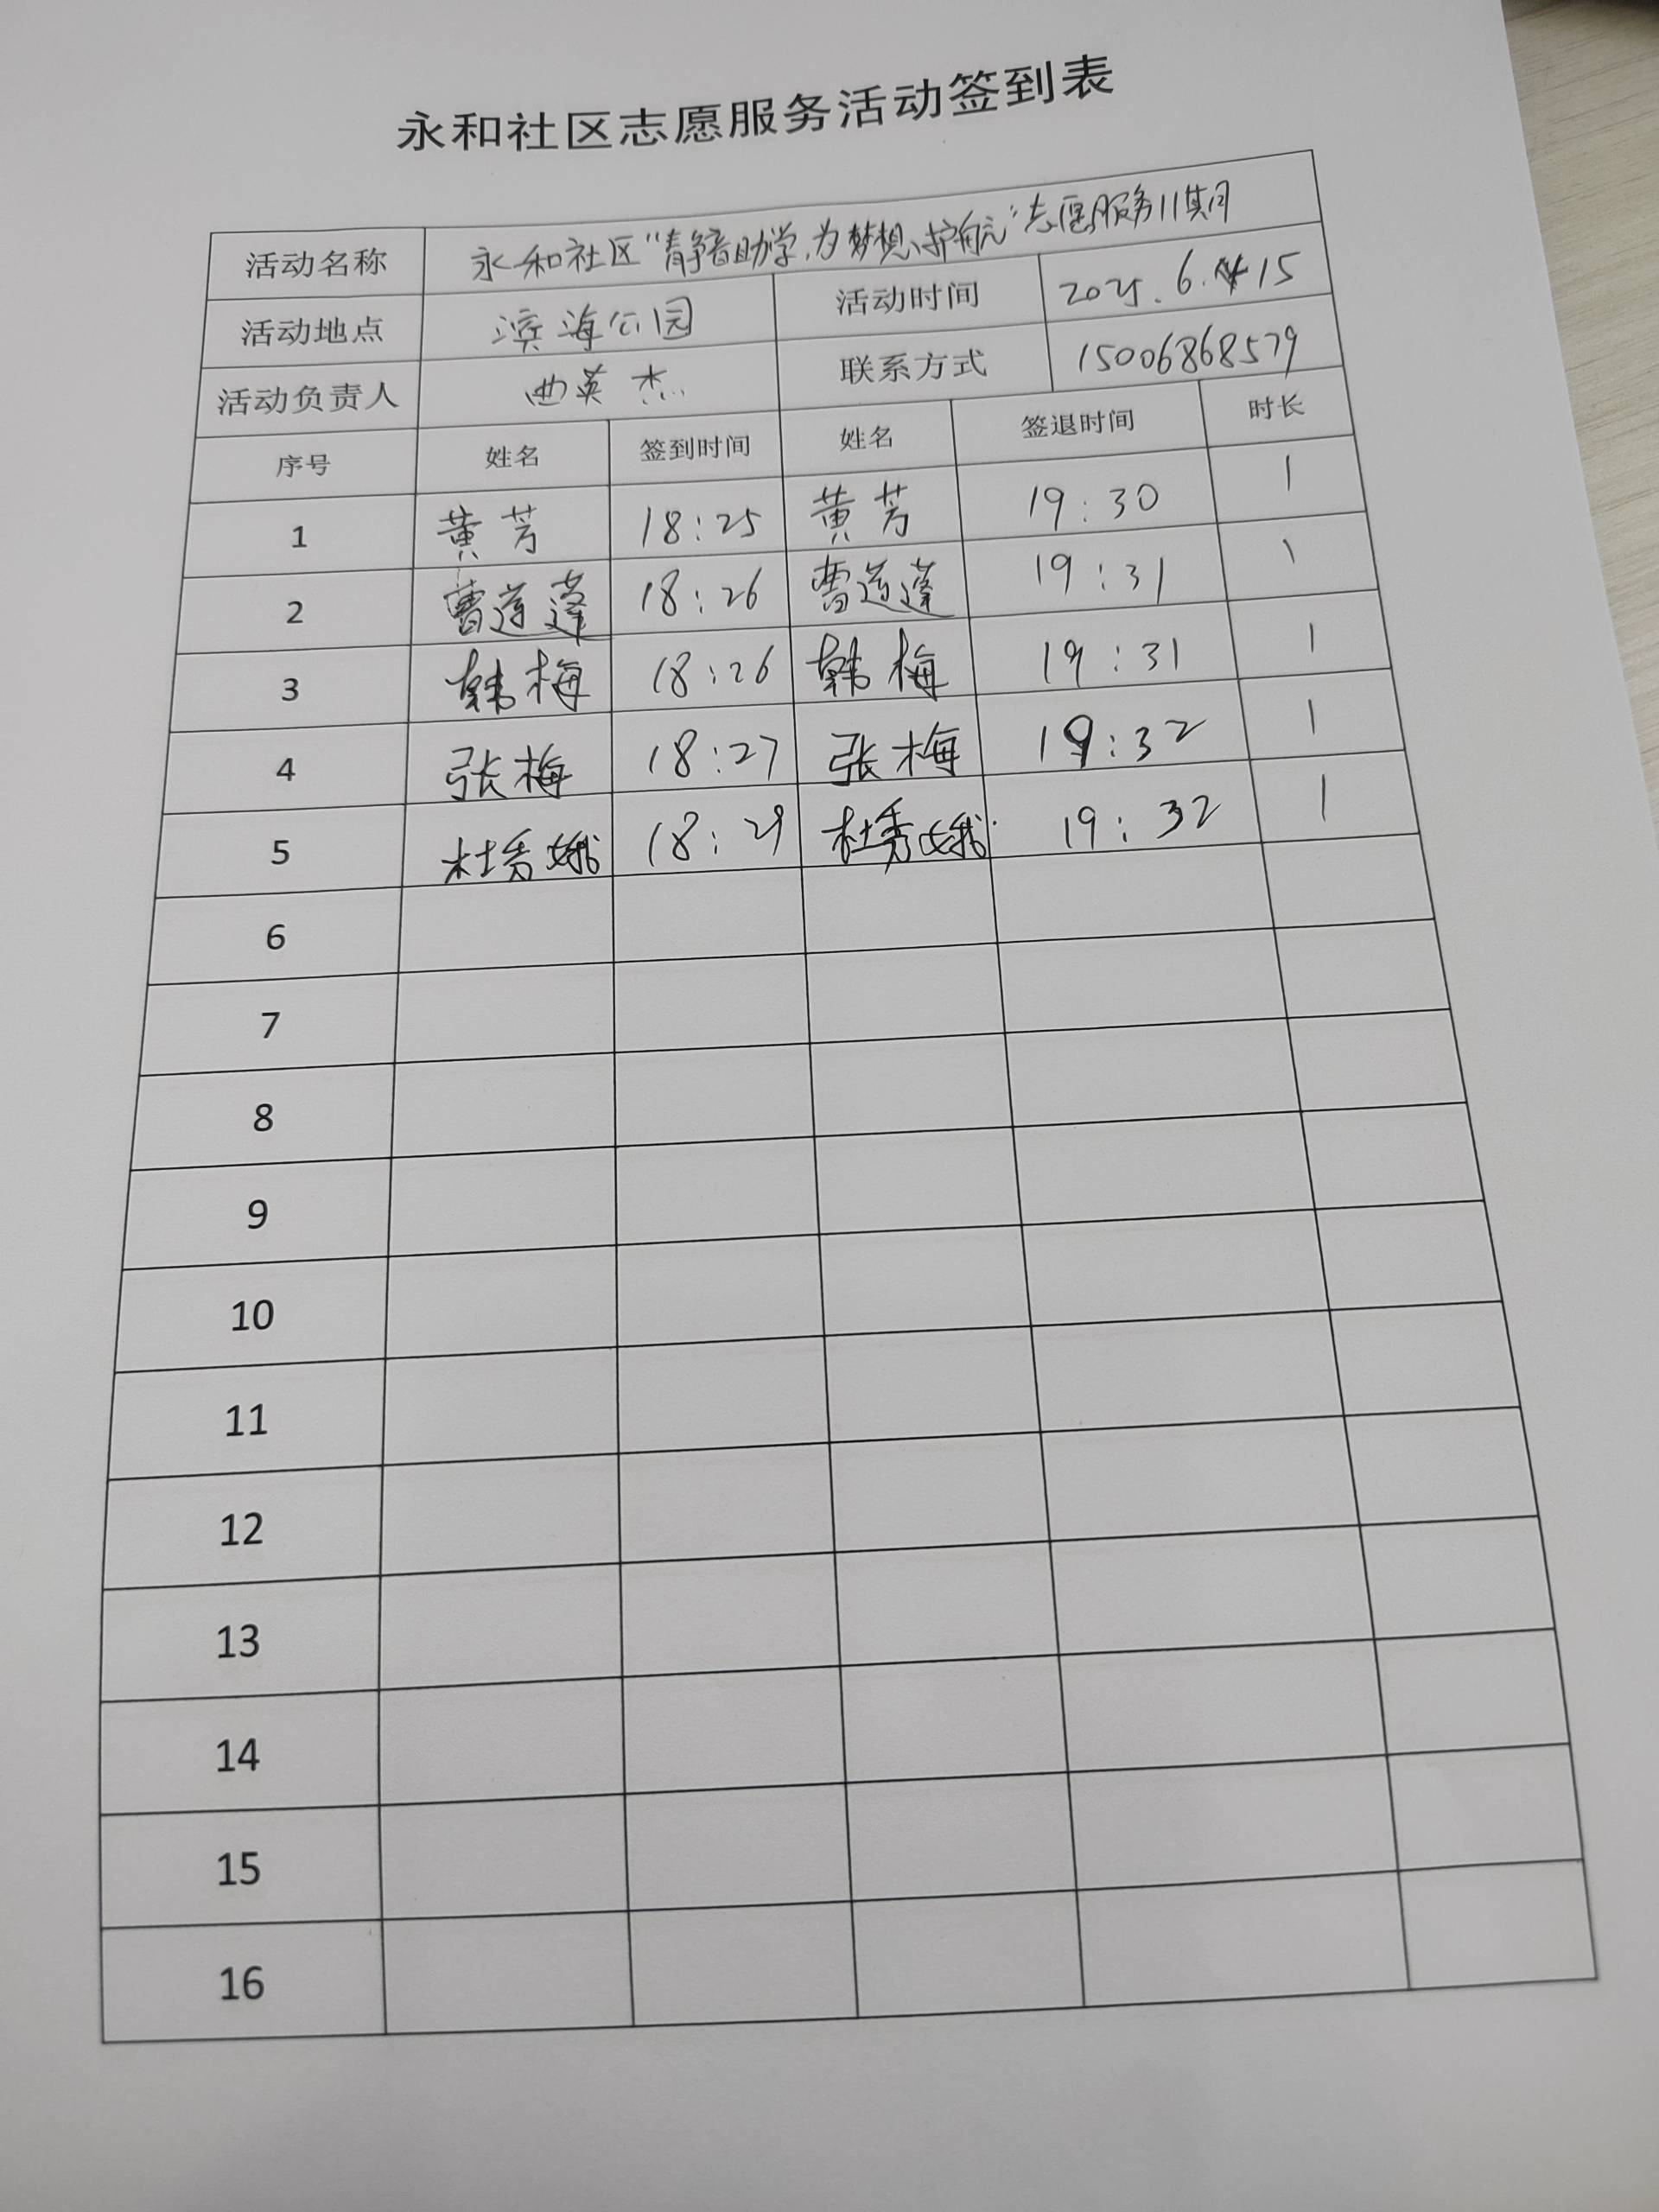 永和社区志愿服务活动签到表
活动名称 永和社区“静音助学,为梦想护航”志愿服务11期
活动地点 滨海公园 活动时间 2025.6.15
活动负责人 曲英杰 联系方式 15006868579
序号 姓名 签到时间 姓名 签退时间 时长
1 黄芳 18:25 黄芳 19:30 1
2 曹道蓬 18:26 曹道蓬 19:31 1
3 韩梅 18:26 韩梅 19:31 1
4 张梅 18:27 张梅 19:32 1
5 杜秀娥 18:29 杜秀娥 19:32 1
6
7
8
9
10
11
12
13
14
15
16